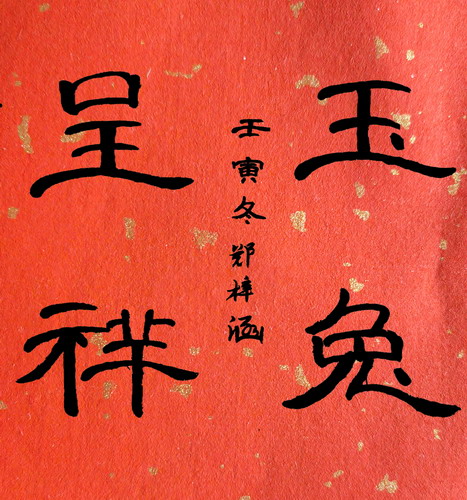 玉兔
呈祥
壬寅冬郑梓涵